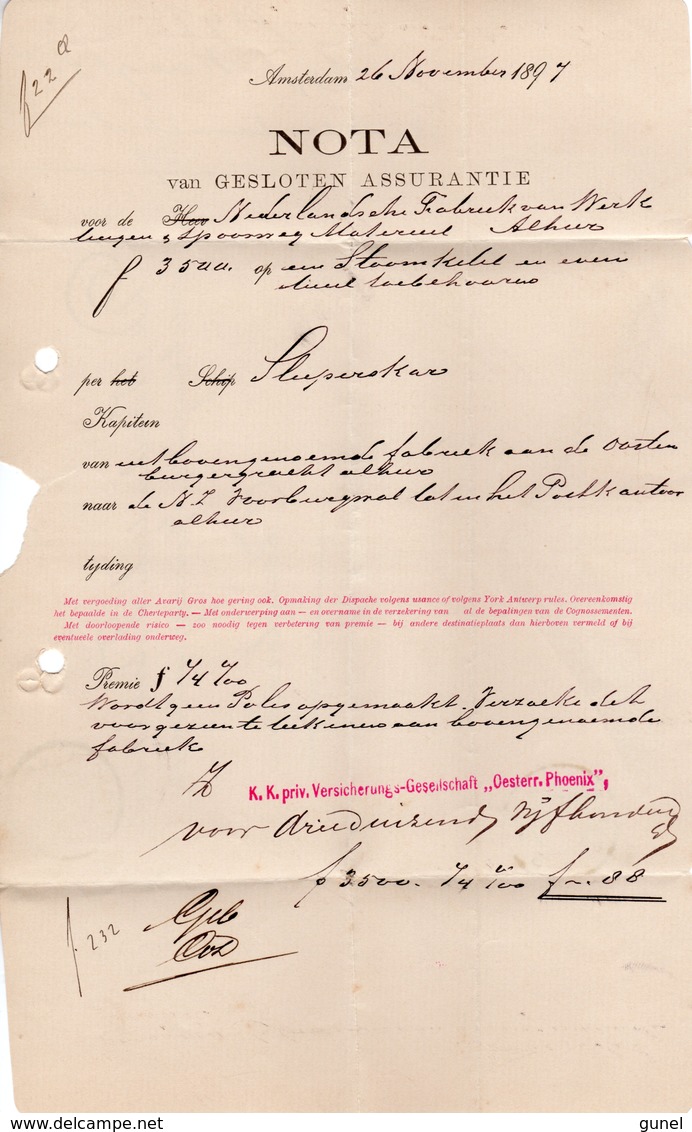 f 22
Amsterdam 26 November 1897
NOTA
van GESLOTEN ASSURANTIE
voor de Nederlandsche Fabriek van Werk
tuigen & Spoorweg Materieel Alhier
f 3500. op een Stoomketel en even
tueel toebehooren
per het Schip Sleeperskar
Kapitein
van uit bovengenoemde fabriek aan de Oosten
burgergracht alhier
naar de N Z Voorburgwal tot in het Postkantoor
alhier
tyding
Met vergoeding aller Avarij Gros hoe gering ook. Opmaking der Dispache volgens usance of volgens York Antwerp rules. Overeenkomstig
het bepaalde in de Cherteparty. — Met onderwerping aan — en overname in de verzekering van al de bepalingen van de Cognossementen.
Met doorloopende risico — zoo noodig tegen verbetering van premie — bij andere destinatieplaats dan hierboven vermeld of bij
eventueele overlading onderweg.
Premie f 1/4 %00
Wordt geen Polis opgemaakt. Verzoeke dit
voor gezien te teekenen aan bovengenoemde
fabriek
K. K. priv. Versicherungs-Gesellschaft „Oesterr. Phoenix",
voor drieduizend vyfhonderd
f 3500. 1/4 %00 f -.88
f. 232
gunel